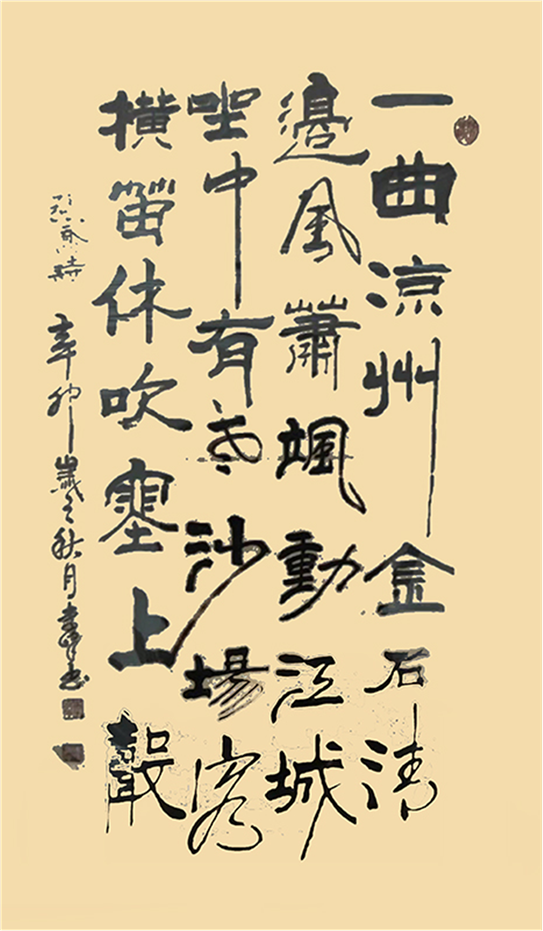 一曲涼州金石清
邊風蕭颯動江城
坐中有老沙場客
橫笛休吹塞上聲
張喬詩 辛卯歲之秋月